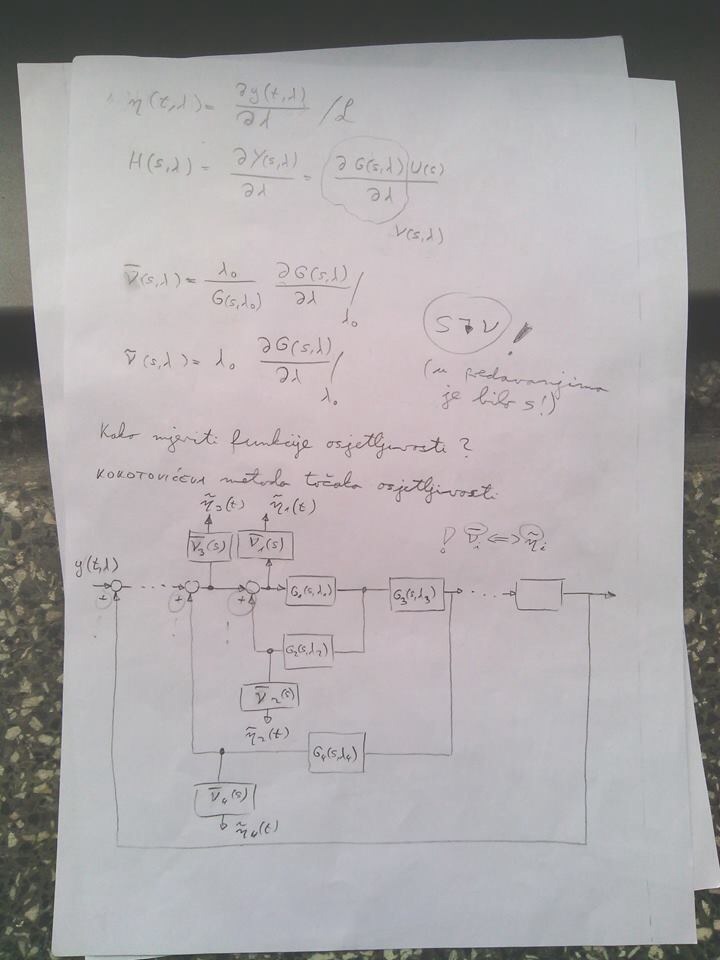 η(t,λ) = ∂y(t,λ)/∂λ /ℒ
H(s,λ) = ∂Y(s,λ)/∂λ = ∂G(s,λ)/∂λ U(s)
V(s,λ)
ν̅(s,λ) = λ₀/G(s,λ₀) ∂G(s,λ)/∂λ /λ₀
S → ν !
ν̃(s,λ) = λ₀ ∂G(s,λ)/∂λ /λ₀
(u predavanjima
je bilo s!)
Kako mjeriti funkcije osjetljivosti ?
KOKOTOVIĆEVA metoda točaka osjetljivosti
η̃₃(t) η̃₁(t)
ν̅₃(s) ν̅₁(s) ! ν̅ᵢ <=> η̃ᵢ
y(t,λ)
G₃(s,λ₃)
+ + +
! ! !
G₂(s,λ₂)
ν̅₂(s)
η̃₂(t)
G₄(s,λ₄)
ν̅₄(s)
η̃₄(t)